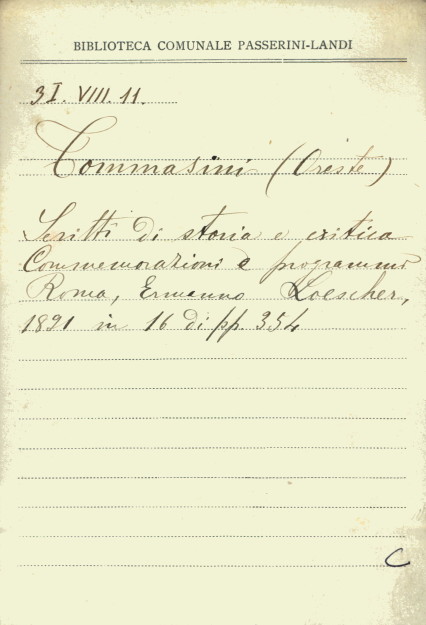 BIBLIOTECA COMUNALE PASSERINI-LANDI
3I. VIII. 11.
Tommasini (Oreste)
Scritti di storia e critica
Commemorazioni e programmi
Roma, Ermanno Loescher,
1891 in 16 di pp. 354
C